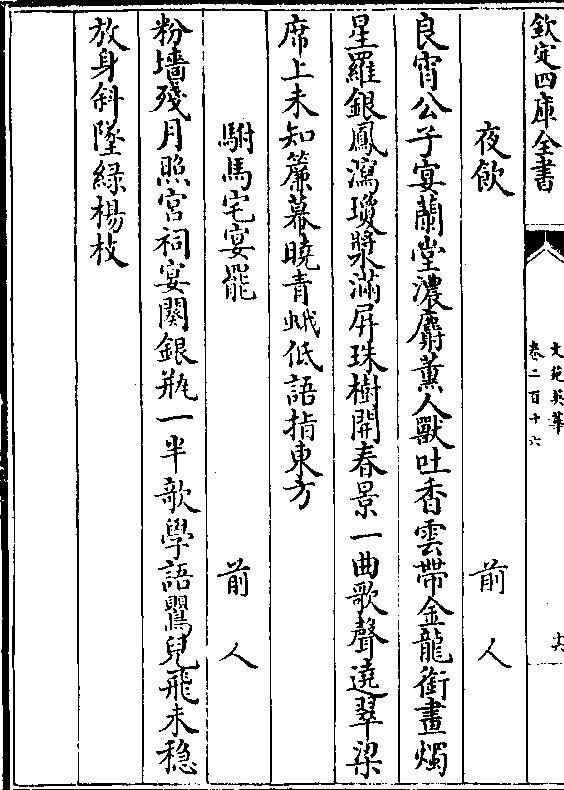 欽定四庫全書
文苑英華
卷二百十六
十六
夜飲 前人
良宵公子宴蘭堂濃麝薰人獸吐香雲帶金龍銜畫燭
星羅銀鳳瀉瓊漿滿屏珠樹開春景一曲歌聲遶翠梁
席上未知簾幕曉青蛾低語指東方
駙馬宅宴罷 前人
粉墻殘月照宮祠宴闋銀瓶一半歌學語鸎兒飛未穏
放身斜墜緑楊枝